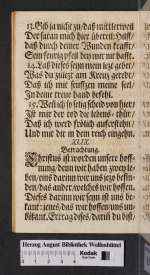 13. Gib ja nicht zu/ daß mittlerweil
Der satan mich hier übereil: Hilff/
daß durch deiner Wunden krafft/
Sein feurig pfeil bey mir nit hafft.
14. Laß dieses seyn mein letz gebet/
Was du zuletzt am Creutz geredt/
Daß ich mit seufftzen meine seel/
In deine treue hand befehl.
15. Weil ich so selig scheid von hier/
Ist mir der tod die lebens-thür/
Daß ich werd frölich auferstehn/
Und mit dir in dein reich eingehn.
XLIX.
Betrachtung.
Christus ist worden unsere hoff-
nung, denn wir haben zwey le-
ben/ eins darinn wir uns jezo befin-
den/ das ander/ welches wir hoffen.
Dieses darinn wir seyn ist uns be-
kant: jenes/ das wir hoffen/ uns un-
bekant. Ertrag dieses/ darin du bist/
Herzog August Bibliothek Wolfenbüttel
Kodak